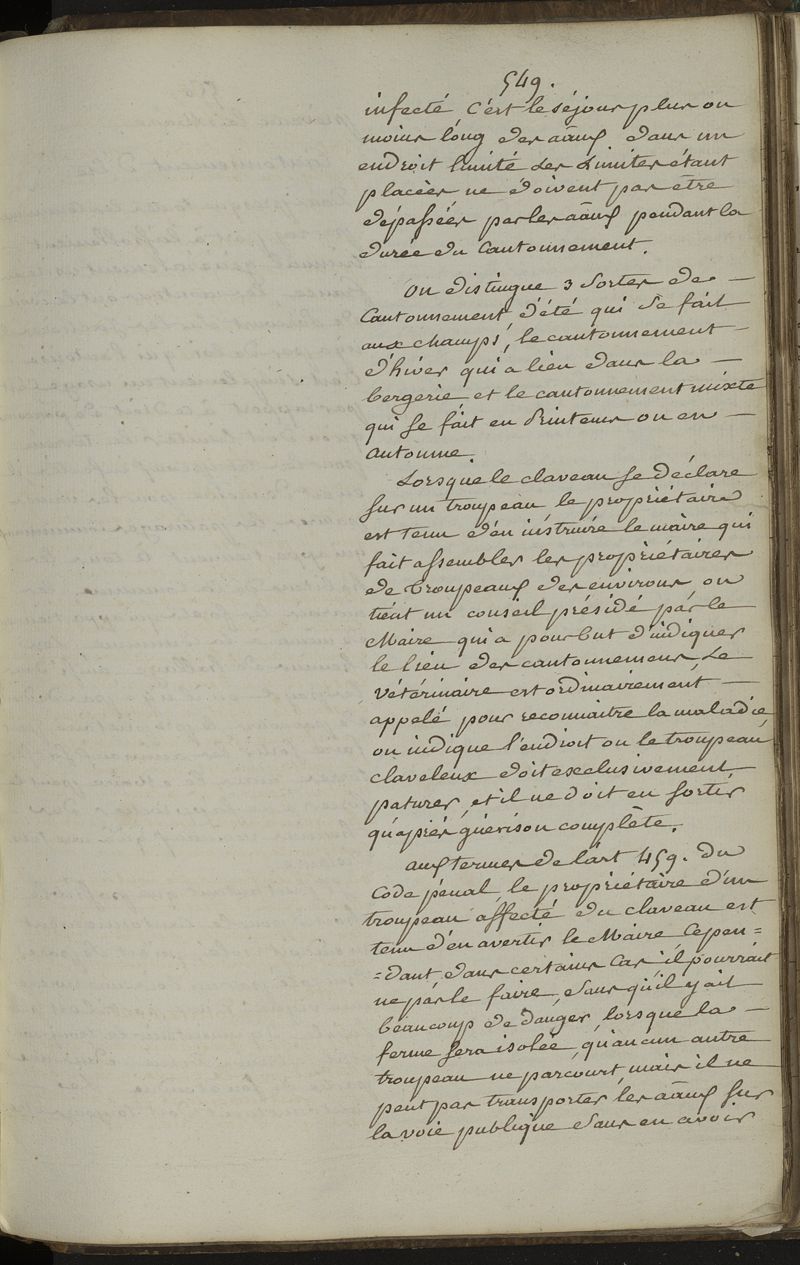 549.
infecté C'est le séjour plus ou
moins long des aāux dans un
endroit limité Les Limites étant
placées ne doivent pas être
dépassées par les aāux pendant la
durée du Cantonnement.
On distingue 3 Sortes de —
Cantonnement d'été qui se fait
aux champs, le cantonnement —
d'hiver qui a lieu dans la —
bergerie et le cantonnement mixte
qui se fait en Printems ou en —
automne.
Lorsque le claveau se déclare
sur un troupeau le propriétaire
est tenu d'en instruire le maire qui
fait assembler les propriétaires
de troupeaux des environs, on
tient un conseil présidé par le
Maire qui a pour but d'indiquer
le lieu des cantonnemens, Le
Vétérinaire est ordinairement —
appelé pour reconnaitre la maladie,
on indique l'endroit ou le troupeau
claveleux doit exclusivement
paturer, et il ne doit en sortir
qu'après guérison complète.
aux termes de l'art 459. du
Code pénal, le propriétaire d'un
troupeau affecté du claveau est
tenu d'en avertir le Maire, Cepen=
=dant dans certains Cas, il pourrait
ne pas le faire, sans qu'il y ait
beaucoup de danger, lorsque la —
ferme sera isolée, qu'aucun autre
troupeau ne parcourt, mais il ne
peut pas transporter les aāux sur
la voie publique sans en avoir